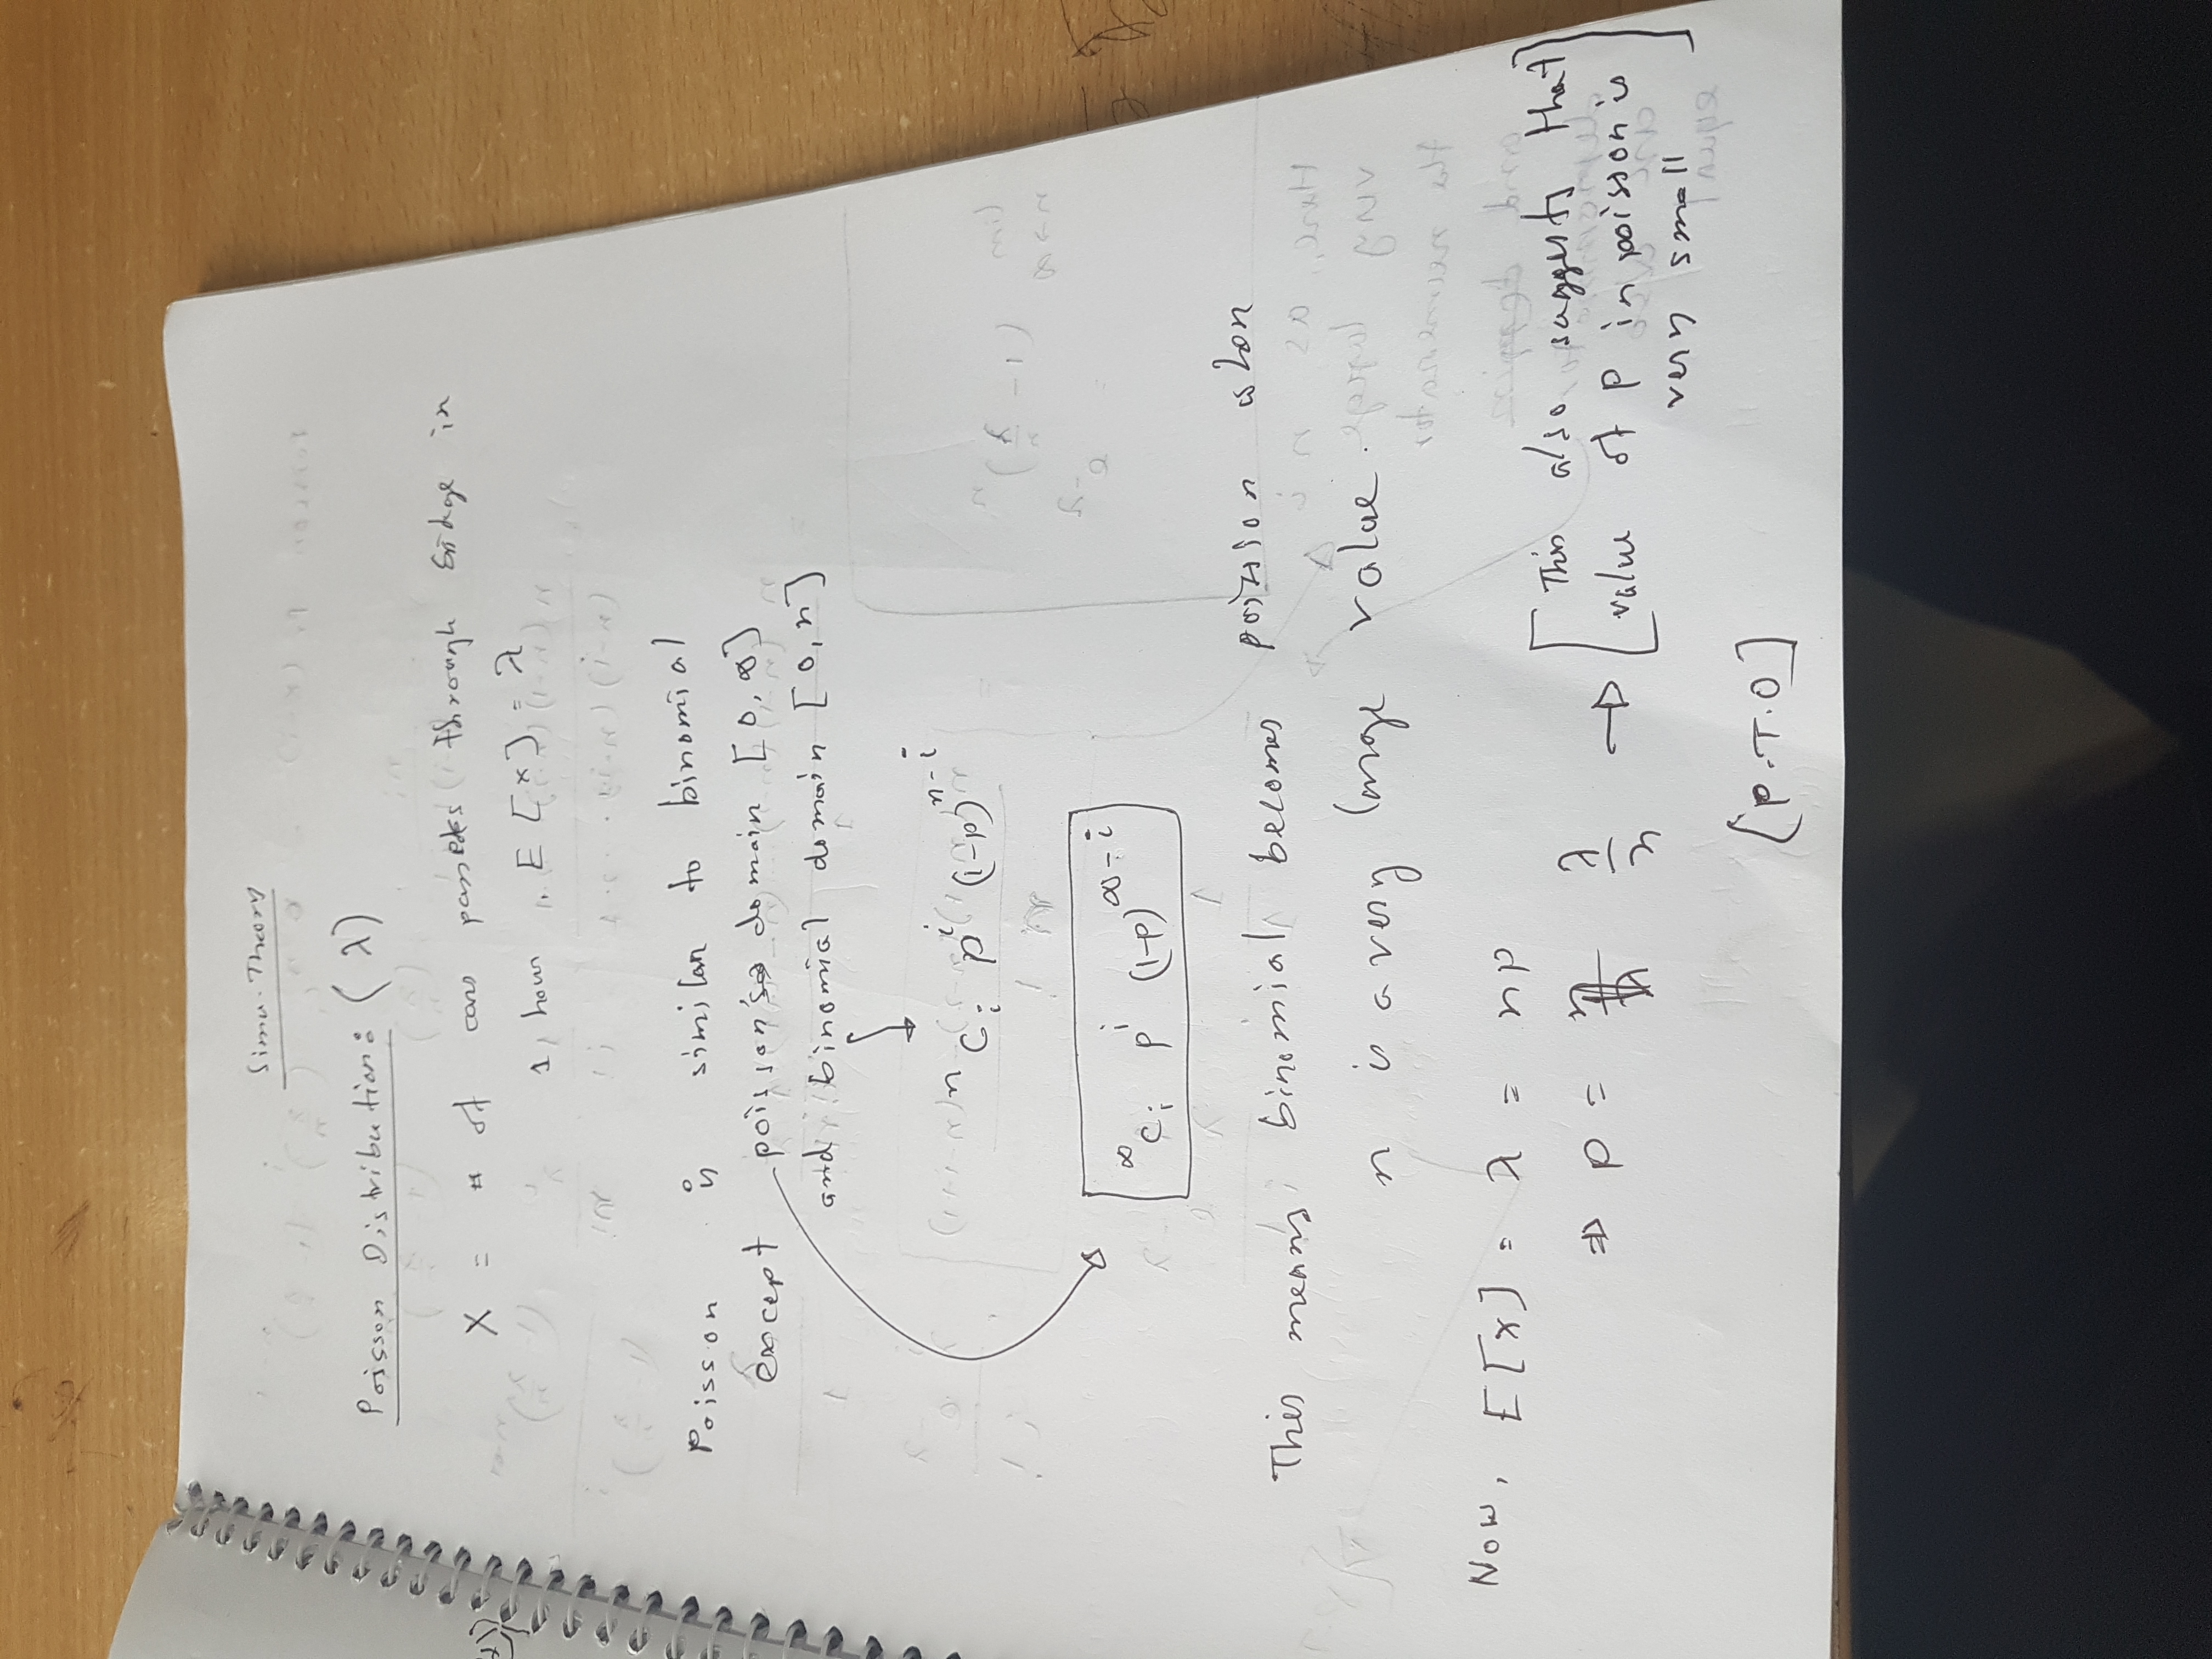 Simu. Theory
Poisson Distribution: (λ)
X = # of cars passes through bridge in
1 hour, E[X] = λ
Poisson is similar to binomial
except poisson's domain [0, ∞]
and binomial domain [0, n]
ⁿCᵢ pⁱ (1-p)ⁿ⁻ⁱ
^∞Cᵢ pⁱ (1-p)^∞-i
This means, binomial becomes poission when
n is a very large value.
Now, E[X] = λ = np
⇒ p = λ/n → [This also suggests that
value of p in poisson is
very small]
[P.T.O]